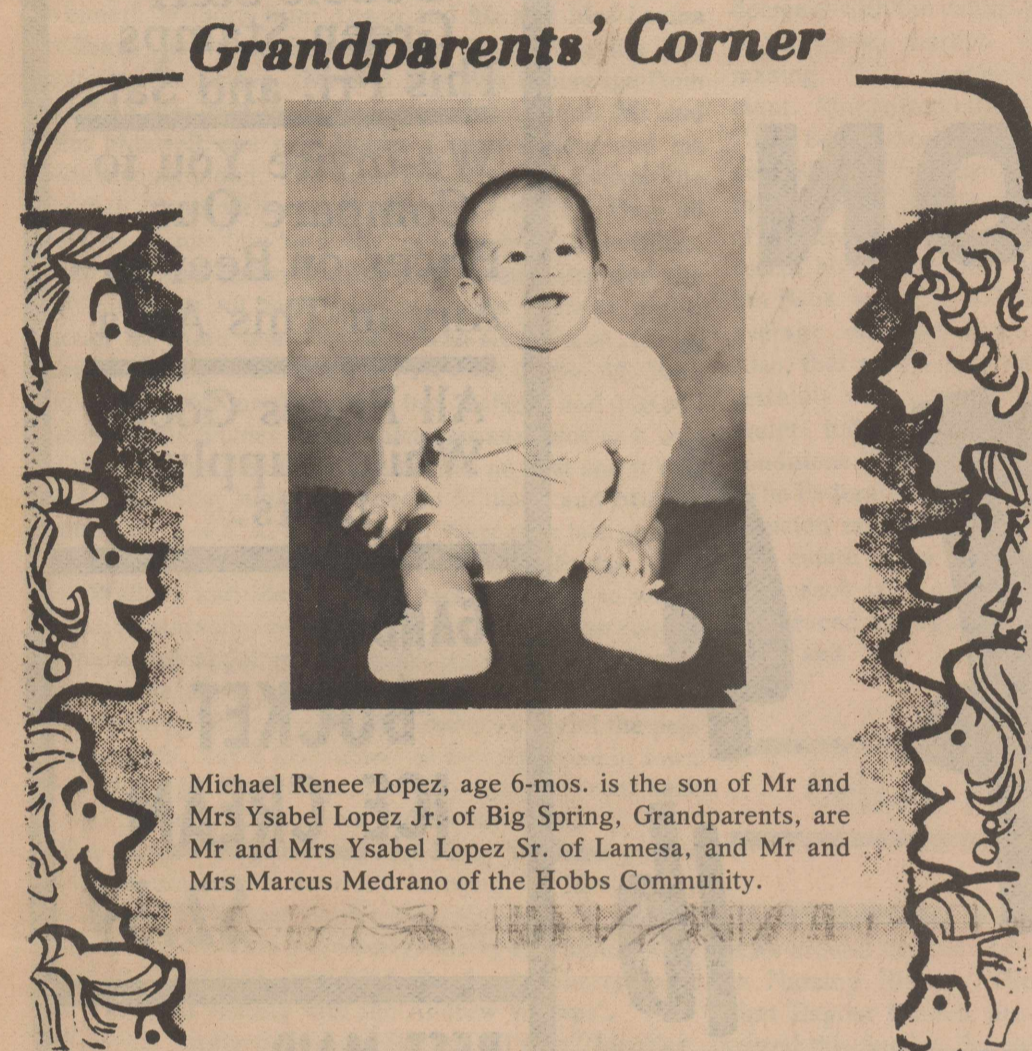 Grandparents' Corner
Michael Renee Lopez, age 6-mos. is the son of Mr and
Mrs Ysabel Lopez Jr. of Big Spring, Grandparents, are
Mr and Mrs Ysabel Lopez Sr. of Lamesa, and Mr and
Mrs Marcus Medrano of the Hobbs Community.